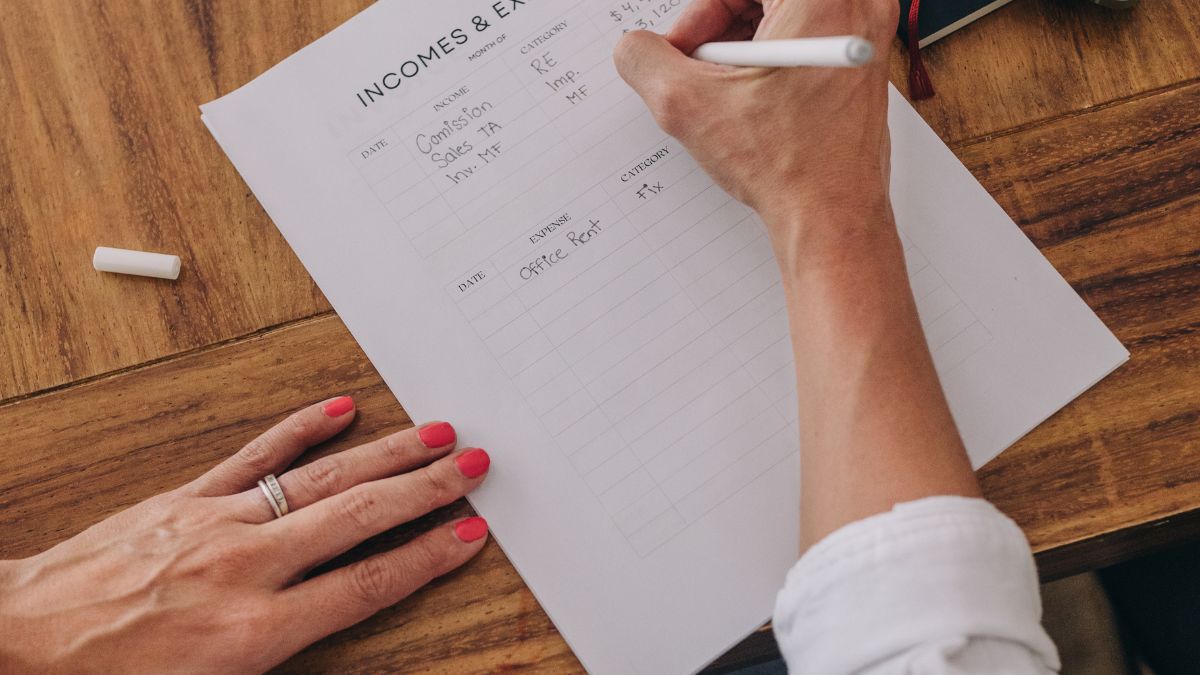 INCOMES & EX
MONTH OF
DATE INCOME CATEGORY
Comission RE
Sales TA Imp.
Inv. MF MF
3,120
DATE EXPENSE CATEGORY
Office Rent Fix